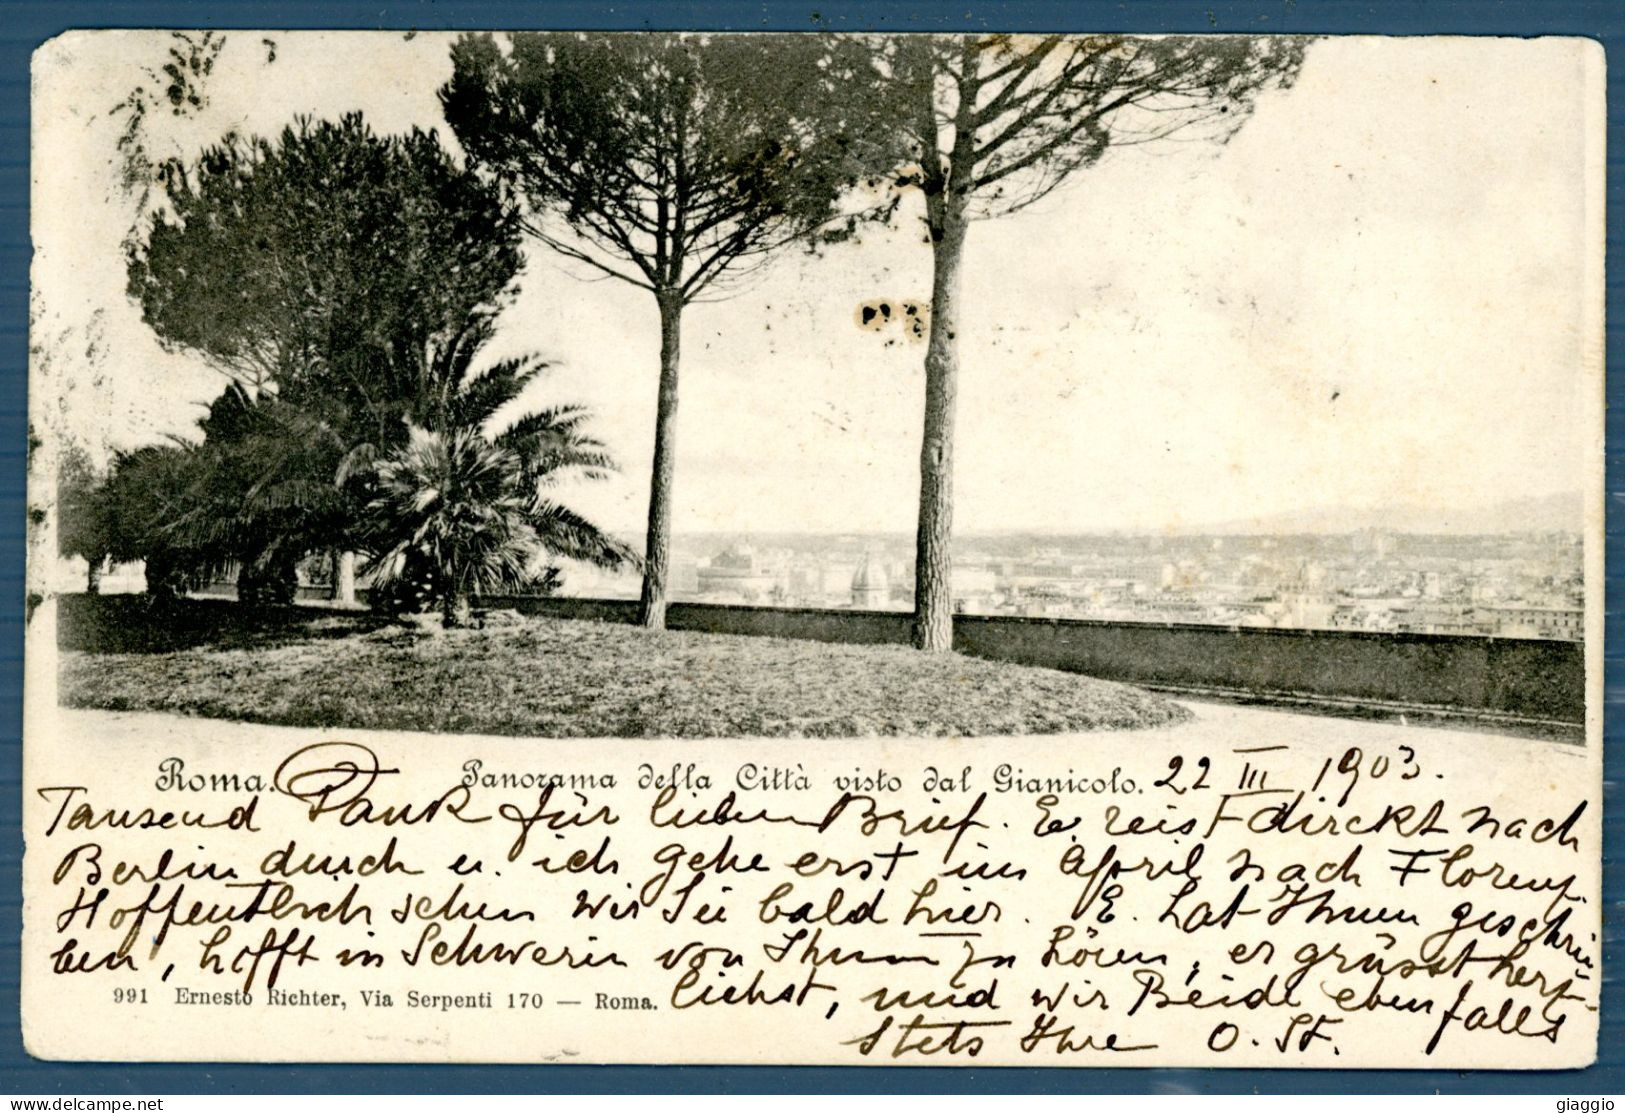 Roma. Panorama della Città visto dal Gianicolo. 22 III 1903.
Tausend Dank für lieben Brief. E. reist direckt nach
Berlin durch u. ich gehe erst im April nach Florenz.
Hoffentlich sehen wir Sie bald hier. E. hat Ihnen geschrie
ben, hofft in Schwerin von Ihnen zu hören, er grüsst herz-
lichst, und wir Beide ebenfalls
991 Ernesto Richter, Via Serpenti 170 — Roma.
Stets Ihre O. St.
giaggio